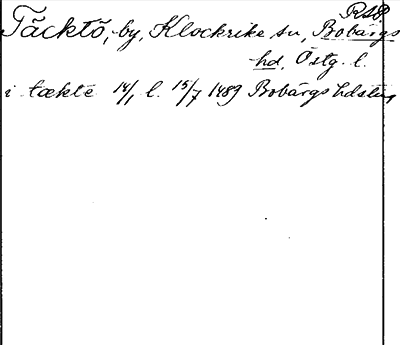 RAP.
Täcktö, by, Klockrike sn, Bobärgs
hd. Östg. l.
i tækte 14/1 l. 15/7 1489 Bobärgs hdsting